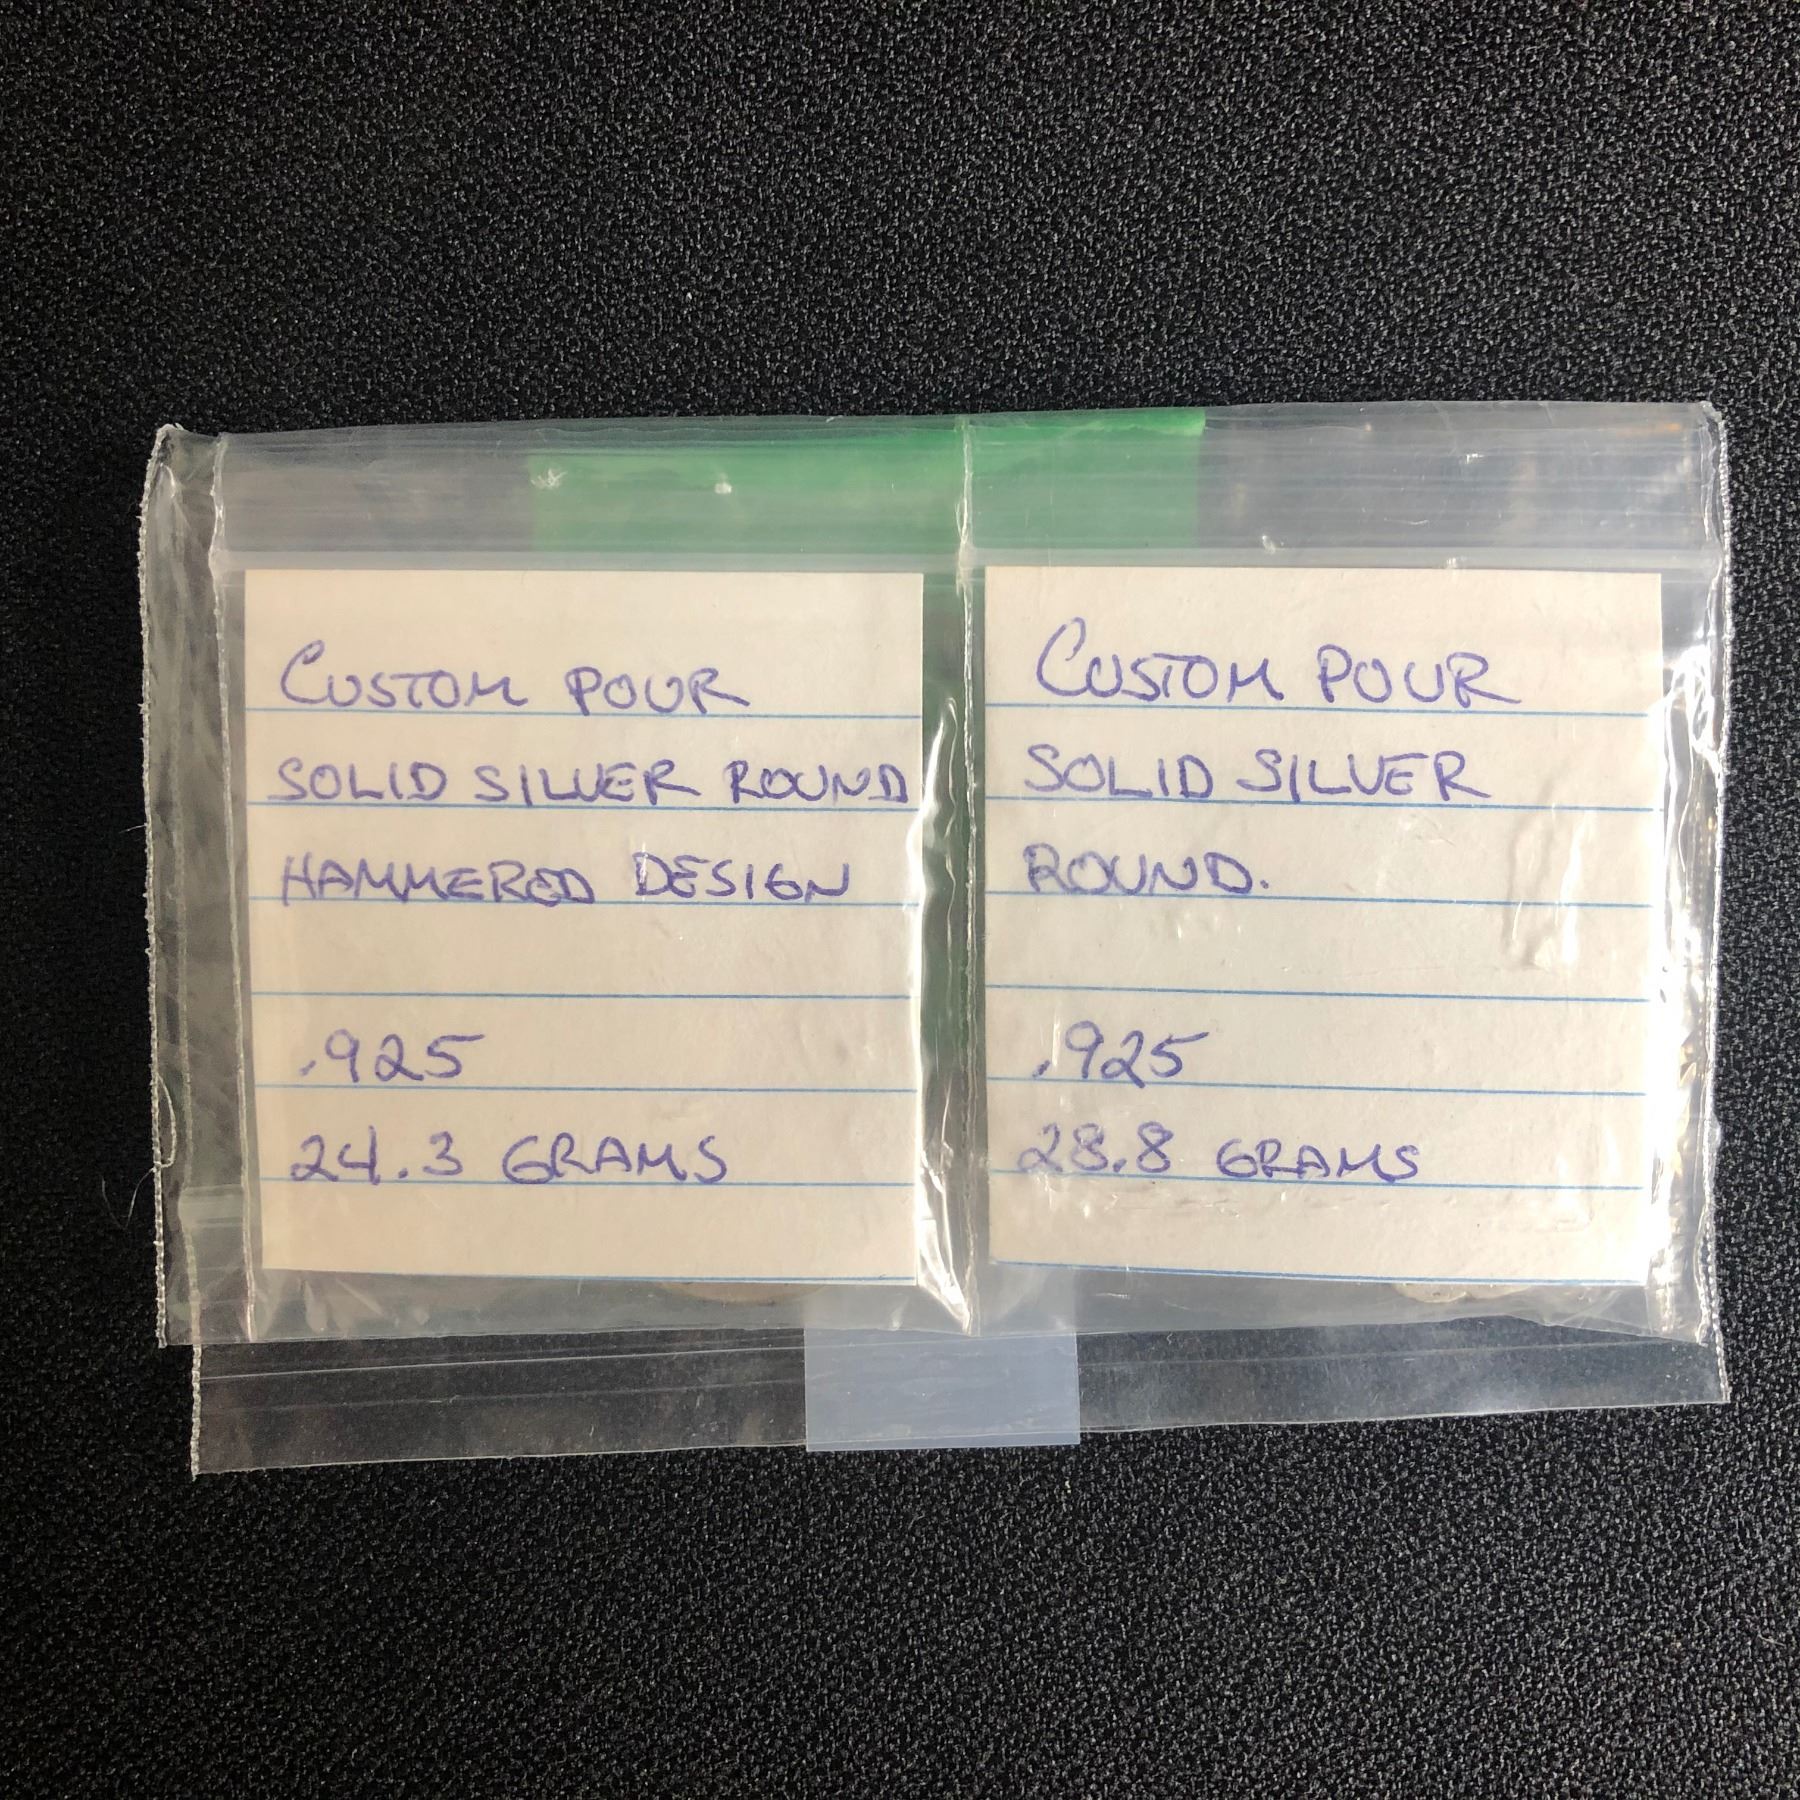 CUSTOM POUR
SOLID SILVER ROUND
HAMMERED DESIGN
.925
24.3 GRAMS
CUSTOM POUR
SOLID SILVER
ROUND.
.925
28.8 GRAMS